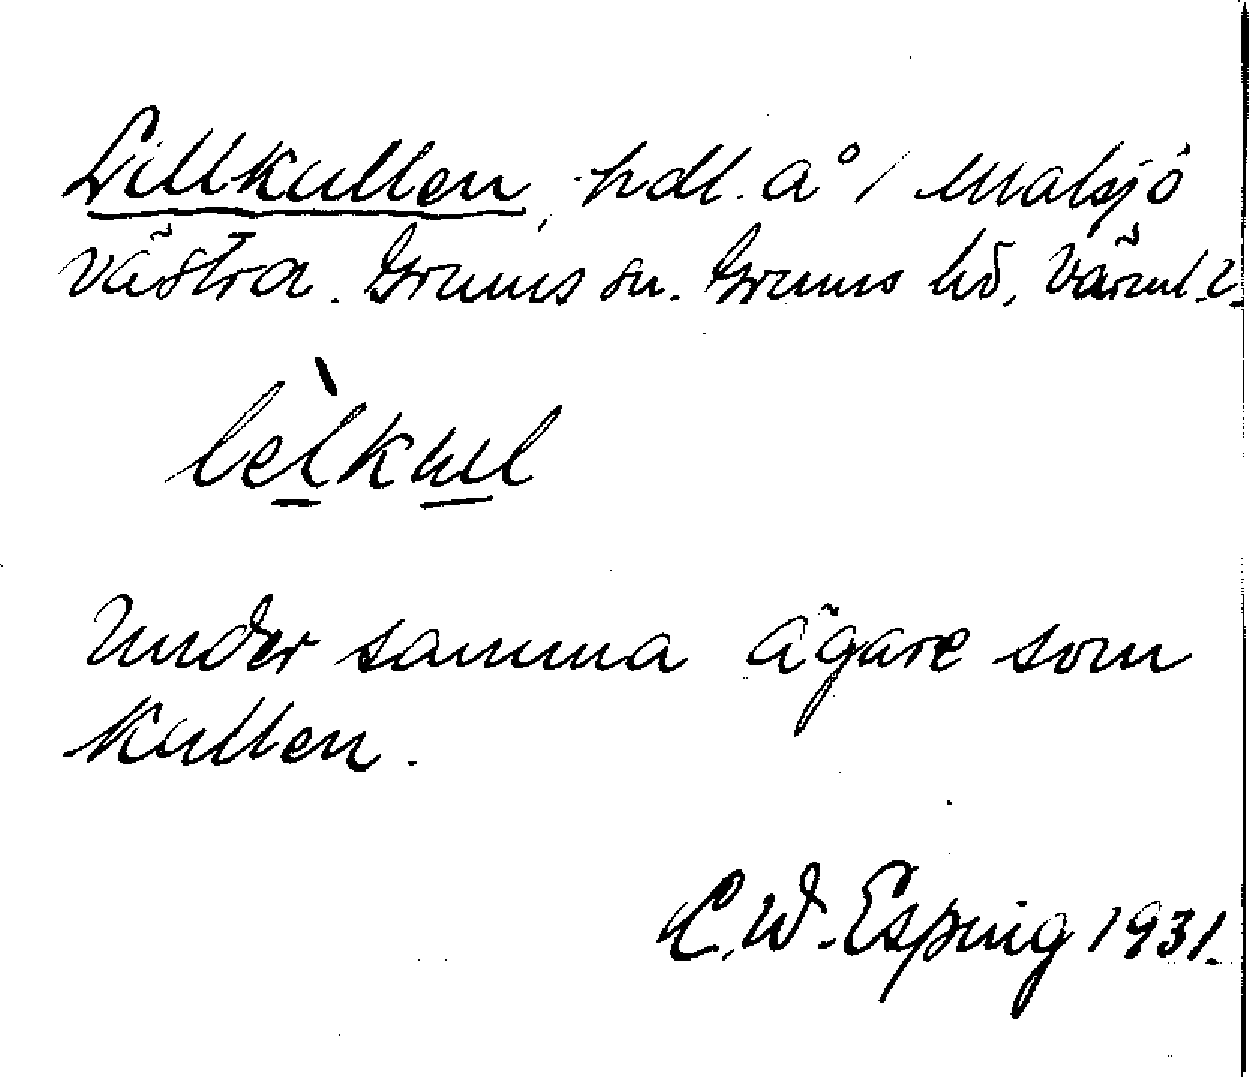 Lillkullen, hdl. å 1 Malsjö
västra. Grums sn. Grums hd, Värml. l.
lèlkul
Under samma ägare som
Kullen.
C. W. Esping 1931.